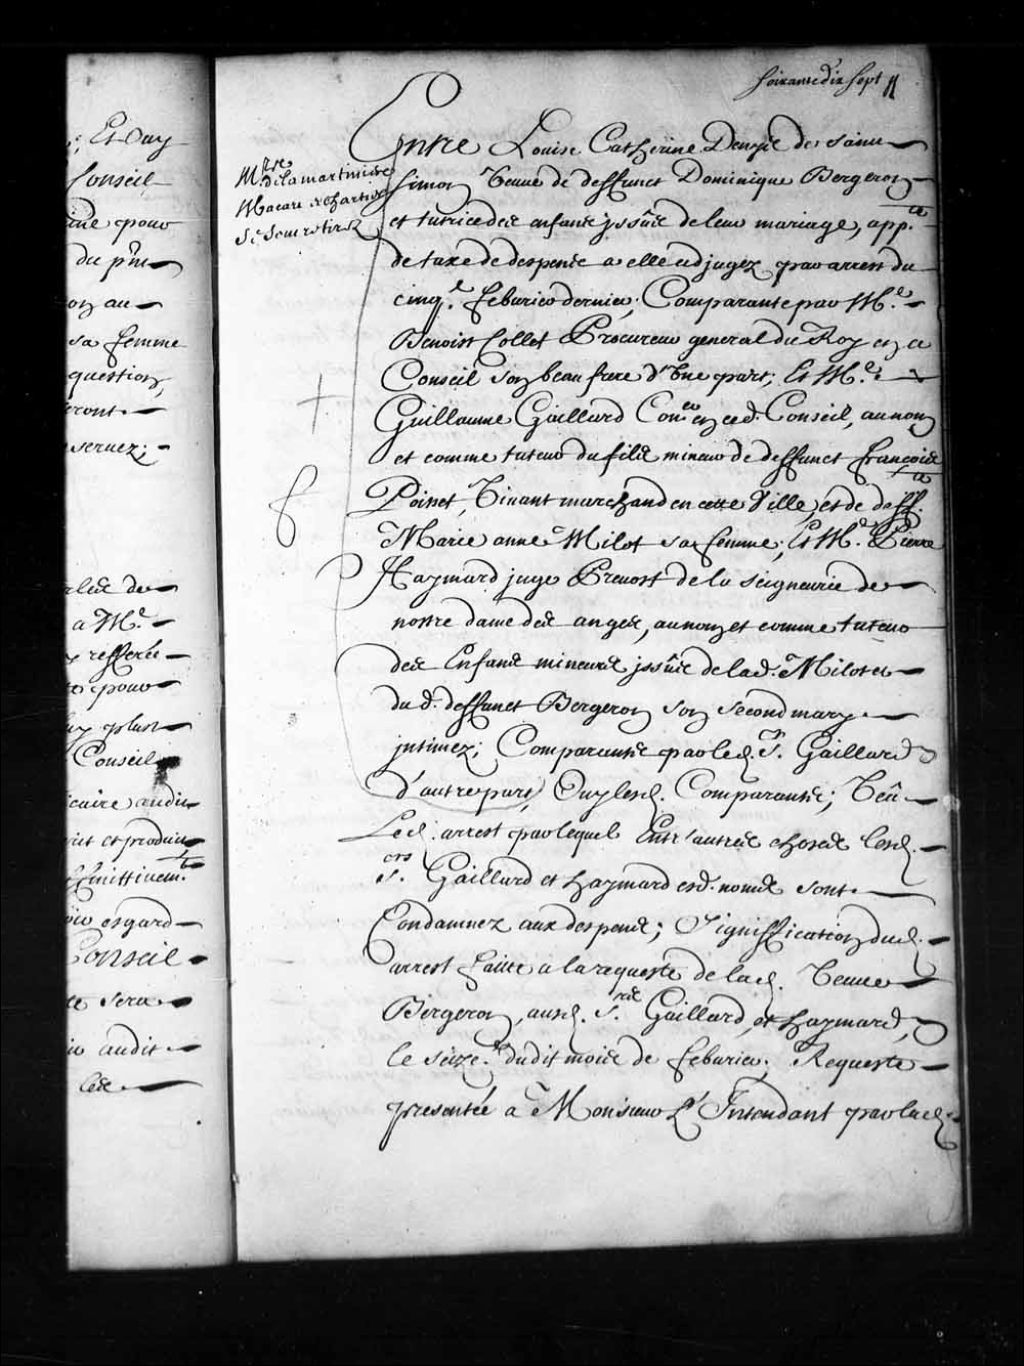 Et Ouy
Conseil
du pnt
on au
sa femme
question,
seront
a Mr.
refferée
pour
plus
Conseil
et produit
deffinittivemt.
esgard
Conseil
sera
audit
soixante dix sept
Mrs.
de la martiniere
Macart et chartier
se sont retirez
Entre Louise Catherine Denys de saint
simon Veuve de deffunct Dominique Bergeron
et tutrice des enfans yssus de leur mariage, appte.
de taxe de despens a elle adjugez par arrest du
cinqe. febvrier dernier; Comparante par Me.
Benoist Collet Procureur general du Roy en ce
Conseil son beau frere d'Une part; Et Me.
Guillaume Gaillard Coner. en ced. Conseil, au nom
et comme tuteur du fils mineur de deffunct françois
Poisset, Vivant marchand en cette Ville, et de deffte.
Marie anne Milot sa femme; Et Me. Pierre
Haymard juge Prevost de la seigneurie de
nostre dame des anges, au nom et comme tuteur
des Enfans mineurs jssus de lad. Milot et
du d. deffunct Bergeron son second mary
jntimez; Comparants par led. Sr. Gaillard
d'autre part, Ouy lesd. Comparants; Veu
Led. arrest par lequel Entr'autres choses lesd.
Srs. Gaillard et haymard esd. noms sont
Condamnez aux despens; Signiffication dud.
arrest faitte a la requeste de lad. Veuve
Bergeron, ausd. Srs. Gaillard et haymard,
le seize dudit mois de febvrier; Requeste
presentée a Monsieur L'Intendant par lad.